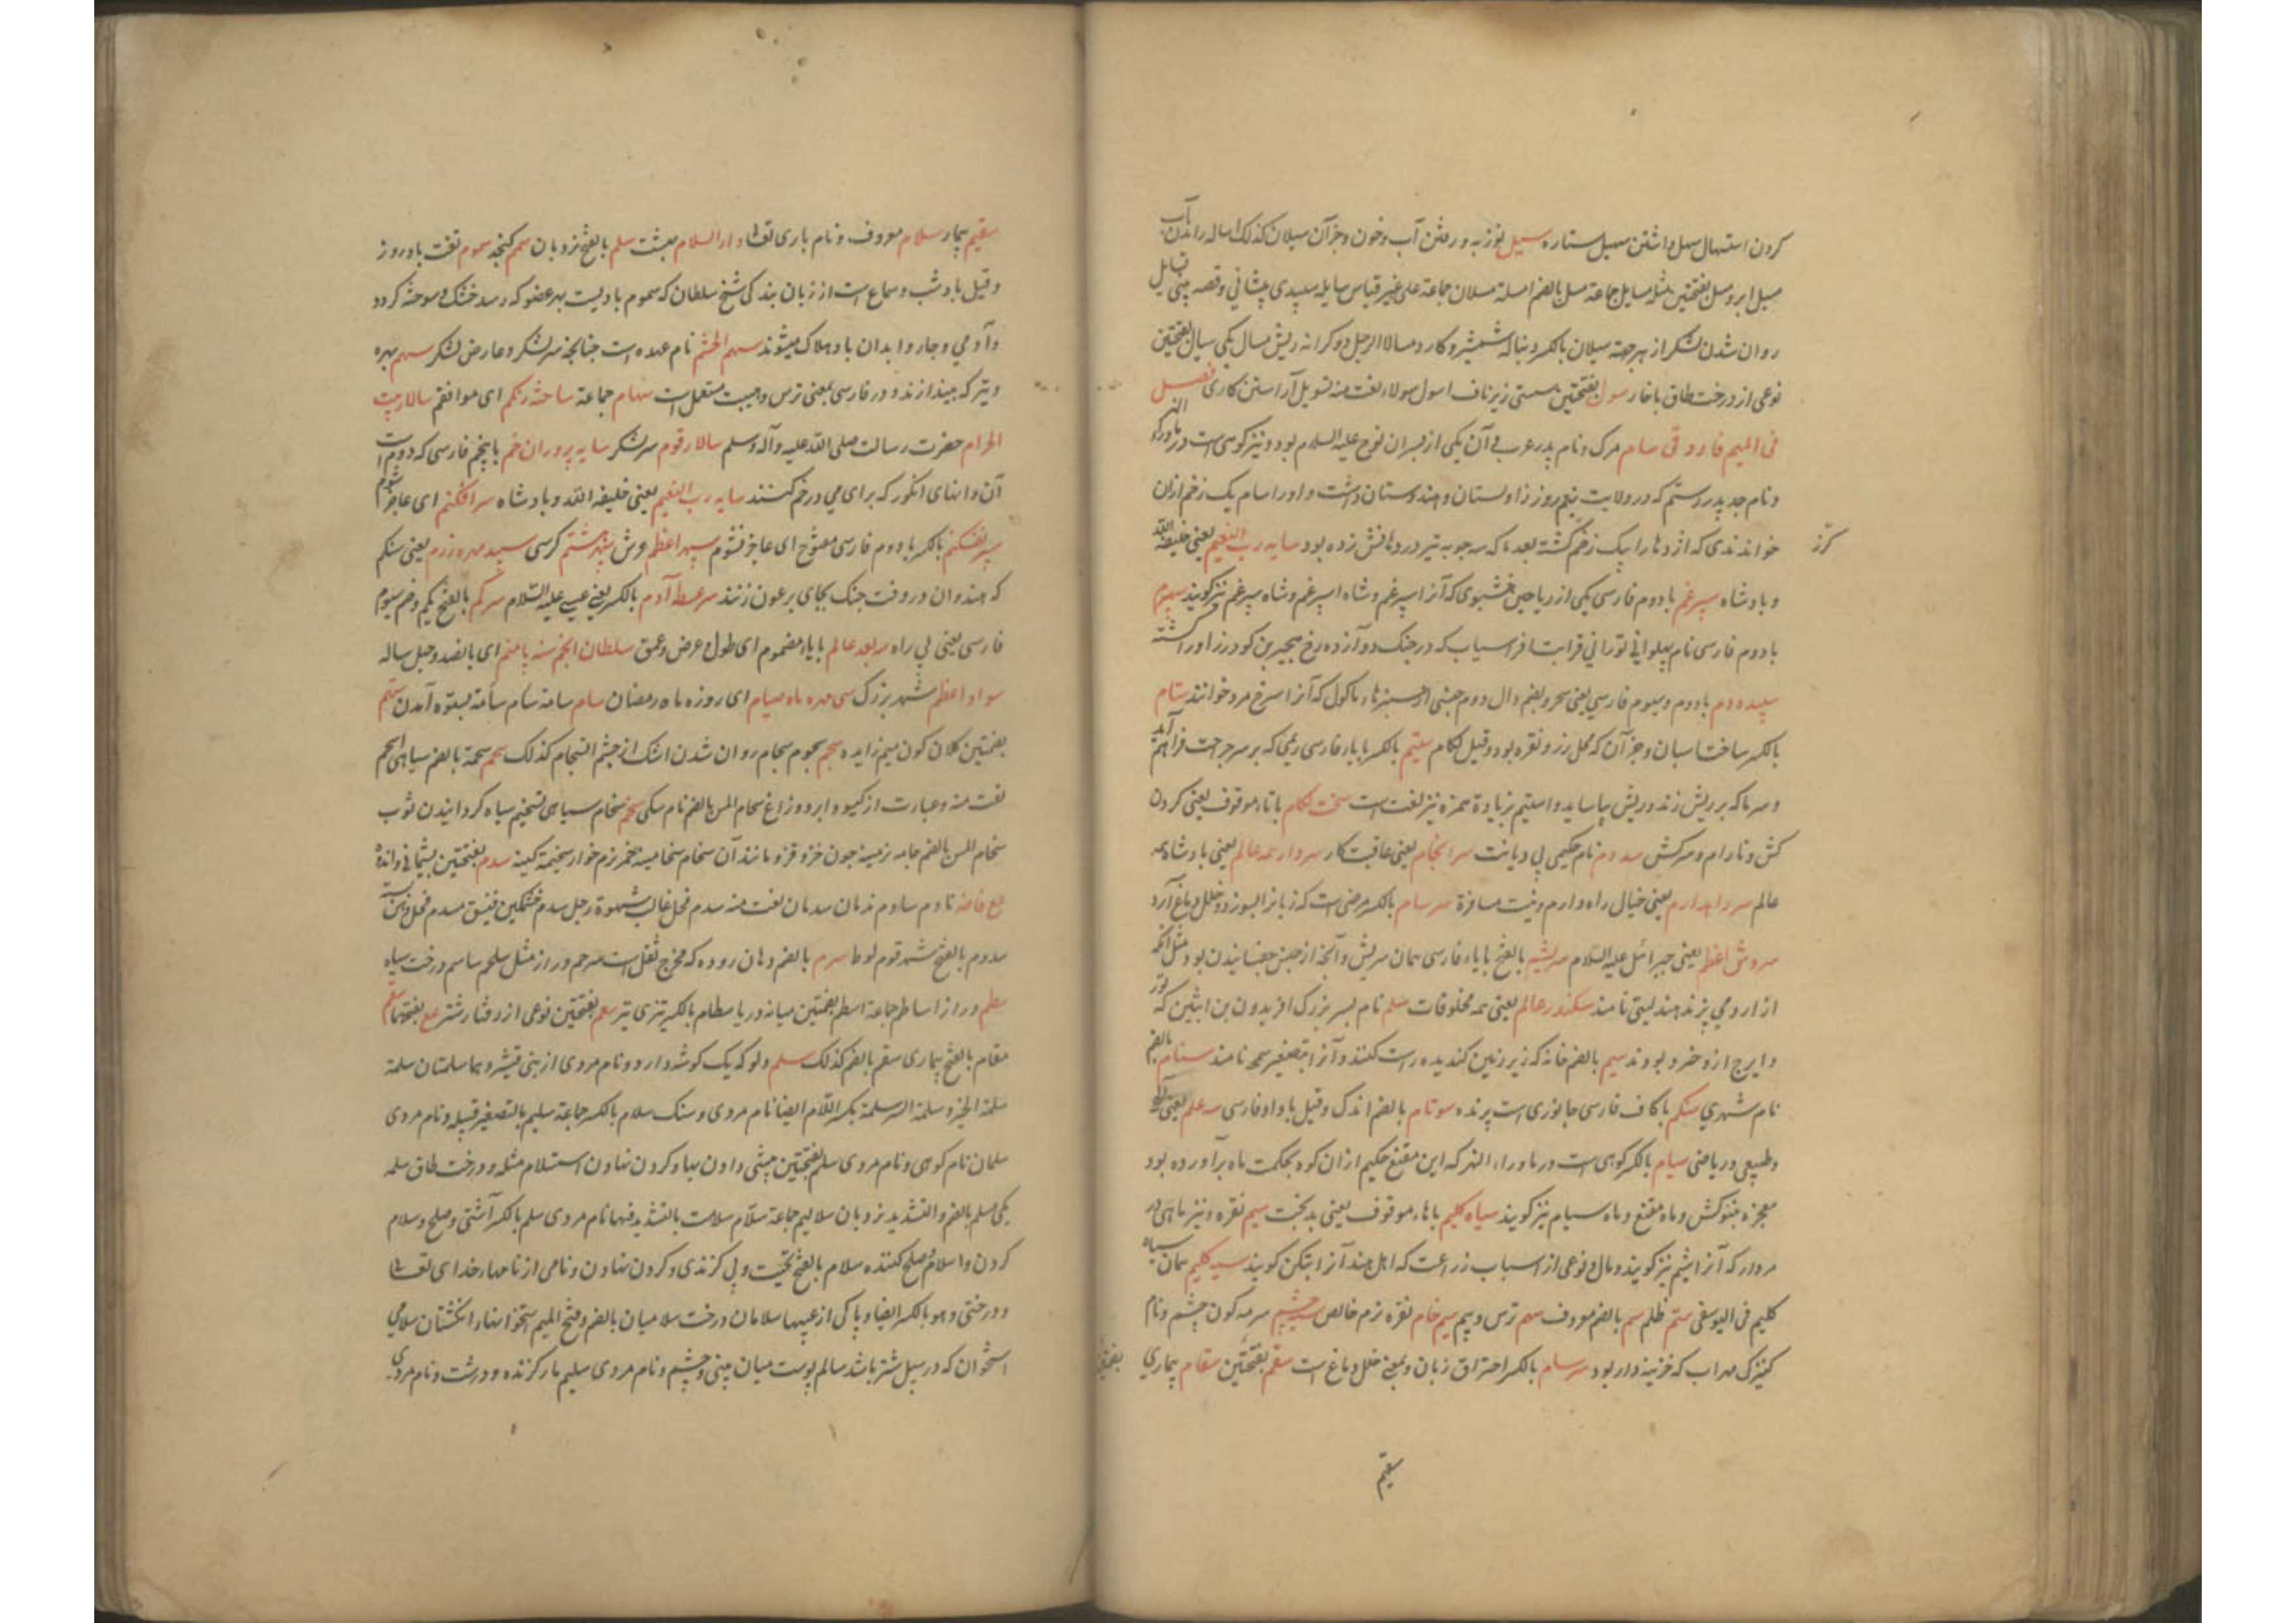 کردن استهال سهل داشتن سهیل ستاره سیل نوزبه و رفتن آب و خون و جز آن سیلان کذلک اساله راندن آب
مسیل ابر و سل بفتحتین مثله مسایل جماعة مسل بالضم امسله مسلان جماعة علی غیر قیاس سایله سپیدی پیشانی و قصبه بینی تسایل
روان شدن لشکر از هر جهة سیلان بالکسر دنباله شمشیر و کارد مسالا الرجل دو کرانه ریش مسال یکی سیال بفتحتین
نوعی از درخت طاق با خار سول بفتحتین سستی زیر ناف اسول سولاء لغت منه تسویل آراستن کاری فصل
فی المیم فاروقی سام مرک و نام پدر عرب و آن یکی از پسران نوح علیه السلام بود و نیز کوهی است در ماوراء النهر
و نام جد پدر رستم که در ولایت نیمروز زاولستان و هندوستان داشت و او را سام یک زخم ازان
خواندندی که اژدها را بیک زخم گشته بعد ما که سه چوبه تیر در دهانش زده بود سایه رب النعیم یعنی خلیفة الله
کرز
و بادشاه سپرغم با دوم فارسی یکی از ریاحین خشبوی که آنرا اسپرغم و شاه اسپرغم و شاه سپرغم نیز کویند سپهرم
با دوم فارسی نام پهلوانی تورانی قرابت افراسیاب که در جنک دوازده رخ هجیر بن کودرز او را کشته
سپیده دم با دوم و سیوم فارسی یعنی سحر و بضم دال دوم جنسی از سبزهاء ماکول که آنرا سرخ مرد خوانند ستام
بالکسر ساخت اسپان و جز آن که محل زر و نقره بود و قیل لکام ستیم بالکسر با یاء فارسی ریمی که بر سر جراحت فراهم آید
و سرما که بر ریش زند و ریش بیاساید و استیم بزیادة همزه نیز لغت است سخت لکام با تاء موقوف یعنی کردن
کش و نارام و سرکش سدوم نام حکیمی بی دیانت سرانجام یعنی عاقبت کار سردار همه عالم یعنی بادشاه همه
عالم سر راه دارم یعنی خیال راه دارم و نیت مسافرة سرسام بالکسر مرضی است که زبانرا بسوزد و خلل دماغ آرد
سروش اعظم یعنی جبرائل علیه السلام سریشم بالفتح با یاء فارسی همان سریش و آنچه از جنس چفسانیدن بود مثل انکه
از ارومی پزند هند لیتی نامند سکندر عالم یعنی همه مخلوقات سلم نام پسر بزرگ افریدون بن ابتین که تور
و ایرج ازو خرد بودند سیم بالضم خانه که زیر زمین کندیده راست کنند و آنرا بتصغیر سمجه نامند سنام بالضم
نام شهری سنکم با کاف فارسی جانوری است پرنده سوتام بالضم اندک و قیل با واو فارسی سه علم یعنی الهی
و طبیعی و ریاضی سیام بالکسر کوهی است در ماوراء النهر که ابن مقنع حکیم ازان کوه بحکمت ماه برآورده بود
معجزه منوکش و ماه مقنع و ماه سیام نیز کویند سیاه کلیم با هاء موقوف یعنی بدبخت سیم نقره و نیز ماهی در
مردار که آنرا شیم نیز کویند و مال و نوعی از اسباب زراعت که اهل هند آنرا بتکن کویند سیه کلیم همان سیاه
کلیم فی الیوسفی ستم ظلم سم بالضم معروف سهم ترس و بیم سیم خام نقره نرم خالص سیه چشم سرمه کون چشم و نام
کنیزک مهراب که خزینه دار بود سرسام بالکسر احتراق زبان و بمعنی خلل دماغ است سقم بفتحتین سقام بیماری
سقیم
سقیم بیمار سلام معروف و نام باری تعالی دار السلام بهشت سلم بالفتح نردبان سمسم کنجد سموم تفت باد روز
و قیل باد شب و سماع است از زبان بندکی شیخ سلطان که سموم بادیست بهر عضو که رسد خشک و سوخته کردد
و آدمی و جاروا بدان باد هلاک میشوند سهم الحشم نام عهده است چنانچه سرلشکر و عارض لشکر سهم بهره
و تیر که بیندازند و در فارسی بمعنی ترس و هیبت مستعمل است سهام جماعة ساخته رنکم ای موافقم سالار بیت
الحرام حضرت رسالت صلی الله علیه و آله وسلم سالار قوم سرلشکر سایه پروران خم با پنجم فارسی که دوم است
آن دانهای انکور که برای می در خم کنند سایه رب النعیم یعنی خلیفة الله و بادشاه سرافکنم ای عاجز شوم
سپر بفکنم بالکسر با دوم فارسی مفتوح ای عاجز نشوم سپهر اعظم عرش سپهر هشتم کرسی سپید مهره زرم یعنی سنکم
که هندوان در وقت جنک بجای برعون زنند سر عطسه آدم بالکسر یعنی عیسی علیه السلام سرکم بالفتح یکم و ضم سیوم
فارسی یعنی بی راه سه بعد عالم با باء مضموم ای طول و عرض و عمق سلطان انجم سنه پا منم ای پانصد و چهل ساله
سواد اعظم شهر بزرک سی مهره ماه صیام ای روزه ماه رمضان سام سامة سأم سأمة بستوه آمدن ستهم
بضمتین کلان کون میم زایده سجم سجوم سجام روان شدن اشک از چشم انسجام کذلک سحم سحمة بالضم سیاهی اسحم
لغت منه و عبارت از کیسو و ابر و زاغ سحام المس بالضم نام سکی سخم سخام سیاهی تسخیم سیاه کردانیدن ثوب
سخام المس بالضم جامه نرمینه چون خز و قز و مانند آن سخام سخامیه خمر نرم خوار سخیمة کینه سدم بفتحتین پشیمانی و اندوه
مع خاصة نادم سادم ندمان سدمان لغت منه سدم فحل غالب شهوة رجل سدم خشمکین فنیق مسدم فحل دهن بسته
سدوم بالفتح شهر قوم لوط سرم بالضم دهان روده که مخرج ثفل است سرحم دراز مثل سلجم ساسم درخت سیاه
سطم دراز اساطم جماعة اسطم بضمتین میانه دریا سطام بالکسر تیزی تیر سعم بفتحتین نوعی از رفتار شتر مع بفتحهما سقم
سقام بالفتح بیماری سقم بالضم کذلک سلم دلو که یک کوشه دارد و نام مردی از بنی قشیر و هما سلمتان سلمة
سلمة الخیر و سلمة الشر سلمة بکسر اللام ایضا نام مردی و سنک سلام بالکسر جماعة سلیم بالتصغیر قبیله و نام مردی
سلمان نام کوهی و نام مردی سلم بفتحتین پیشی دادن بها و کردن نهادن استلام مثله و درخت طاق سلمه
یکی سلم بالضم و التشدید نردبان سلالیم جماعة سلام سلامت بالتشدید فیهما نام مردی سلم بالکسر آشتی و صلح و سلام
کردن و اسلام صلح کننده سلام بالفتح تحیت و بی کزندی و کردن نهادن و نامی از نامهاء خدای تعالی
و درختی و هو بالکسر ایضا و پاکی از عیبها سلامان درخت سلامیان بالضم و فتح المیم استخوانهاء انکشتان سلامی
استخوان که در سپل شتر باشد سالم پوست میان بینی و چشم و نام مردی سلیم مار کزنده و درشت و نام مردی